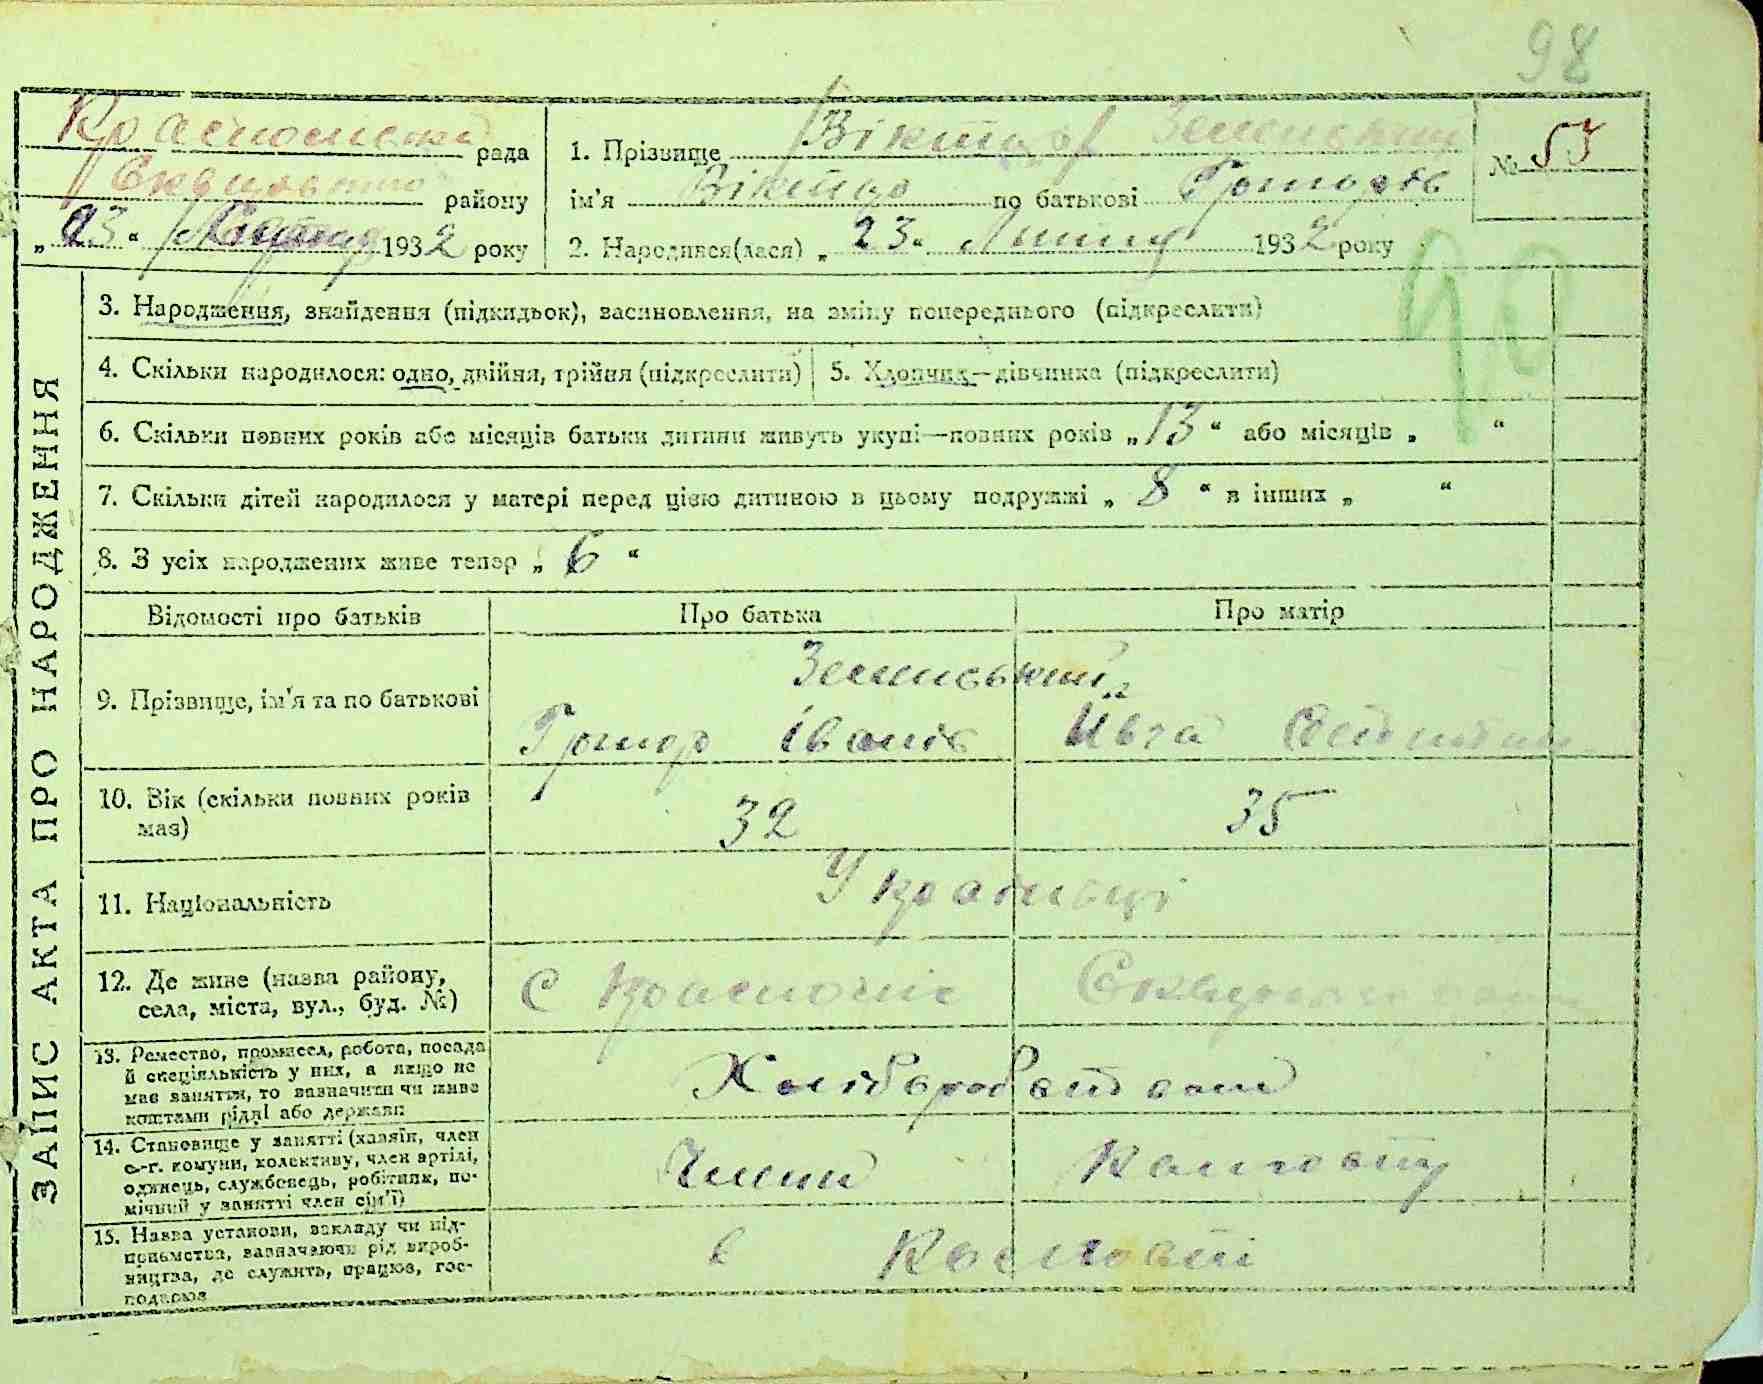 98
рада
1. Прізвище Віктор Земенський
№ 53
району
ім'я Віктор по батькові Григорів
"23" 1932 року
2. Народився(лася) "23" Липня 1932 року
ЗАПИС АКТА ПРО НАРОДЖЕННЯ
3. Народження, знайдення (підкидьок), засиновлення, на зміну попереднього (підкреслити)
4. Скільки народилося: одно, двійня, трійня (підкреслити)
5. Хлопчик—дівчинка (підкреслити)
6. Скільки повних років або місяців батьки дитини живуть укупі—повних років „13“ або місяців „ “
7. Скільки дітей народилося у матері перед цією дитиною в цьому подружжі „8“ в інших „ “
8. З усіх народжених живе тепер „6“
Відомості про батьків
Про батька
Про матір
9. Прізвище, ім'я та по батькові
Земенський
Григор Іванів
Івга
10. Вік (скільки повних років має)
32
35
11. Національність
Українці
12. Де живе (назва району, села, міста, вул., буд. №)
с
13. Ремество, промисел, робота, посада й спеціяльність у них, а якщо не має заняття, то зазначити чи живе коштами рідні або держави
Хліборобство
14. Становище у занятті (хазяїн, член с.-г. комуни, колективу, член артілі, одинець, службовець, робітник, помічний у занятті член сім'ї)
Члени Колгоспу
15. Назва установи, закладу чи підприємства, зазначаючи рід виробництва, де служить, працює, господарює
в Колгоспі